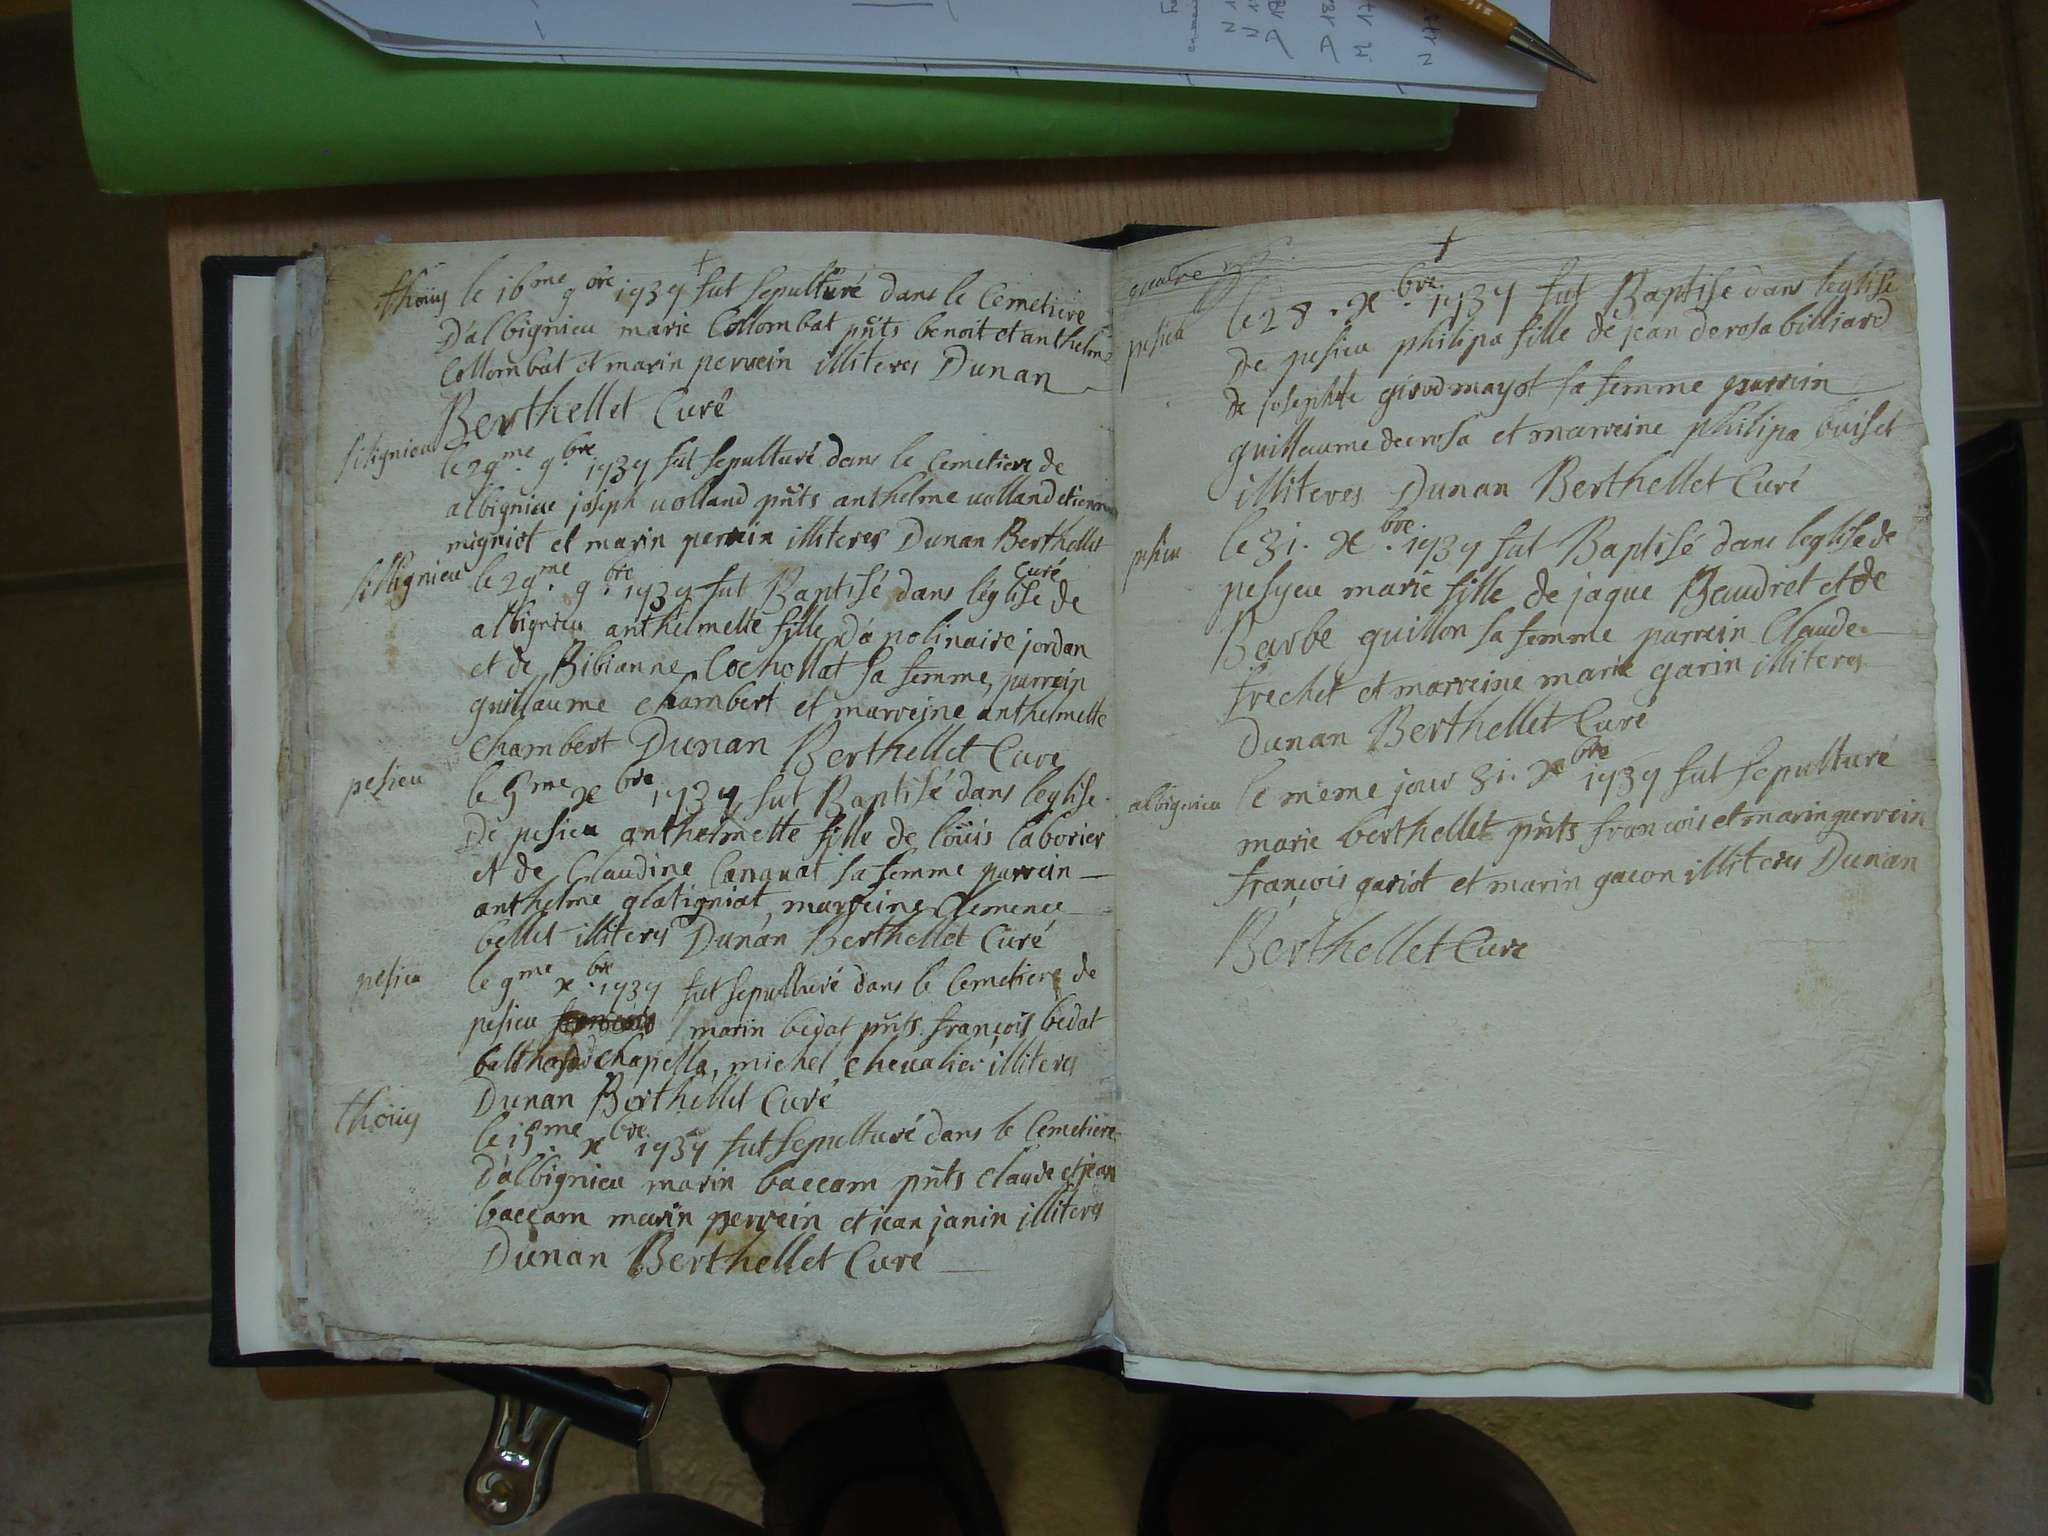 thoüy le 16me 9bre 1737 fut sepulturé dans le Cemetiere
D'albignieu marie Collombat pñts benoit et anthelme
Collombat et marin perrein illiteres Dunan
Berthellet Curé
silignieu le 29me. 9.bre 1737 fut sepulturé dans le Cemetiere de
albignieu joseph uolland pñts anthelme uolland etienne
migniot et marin perrein illiteres Dunan Berthellet
Curé
sillignieu le 29me. 9.bre 1737 fut Baptisé dans l'église de
albignieu anthelmette fille D'apolinaire jordan
et de Bibianne Cochollat sa femme, parrein
guillaume chambert et marreine anthelmette
chambert Dunan Berthellet Curé
pesieu le 5me xbre 1737 fut Baptisé dans l'eglise
De pesieu anthelmette fille de loüis laborier
et de Claudine Canquat sa femme parrein
anthelme glatigniat, marreine Clemence
bellet illiteres Dunan Berthellet Curé
pesieu le 9me x.bre 1737 fut sepulturé dans le Cemetiere de
pesieu françois marin bedat pñts françois bedat
balthasard chapella, michel cheualier illiteres
Dunan Berthellet Curé
thoüy le 15me. xbre. 1737 fut sepulturé dans le Cemetiere
D'albignieu marin baccam pñts claude et jean
baccam marin perrein et jean janin illiteres
Dunan Berthellet Curé
pesieu le 28. xbre. 1737 fut Baptisé dans l'eglise
De pesieu philipa fille de jean derosa billiard
de josephte girod mayot sa femme parrein
guillaume derosa et marreine philipa buiset
illiteres Dunan Berthellet Curé
pesieu le 31. xbre. 1737 fut Baptisé dans l'eglise de
pesyeu marie fille de jaque Beaudret et de
Barbe guillon sa femme parrein Claude
frechet et marreine marie garin illiteres
Dunan Berthellet Curé
albignieu le meme jour 31. xbre 1737 fut sepulturé
marie berthellet pñts françois et marin perrein
françois gariot et marin gacon illiteres Dunan
Berthellet Curé